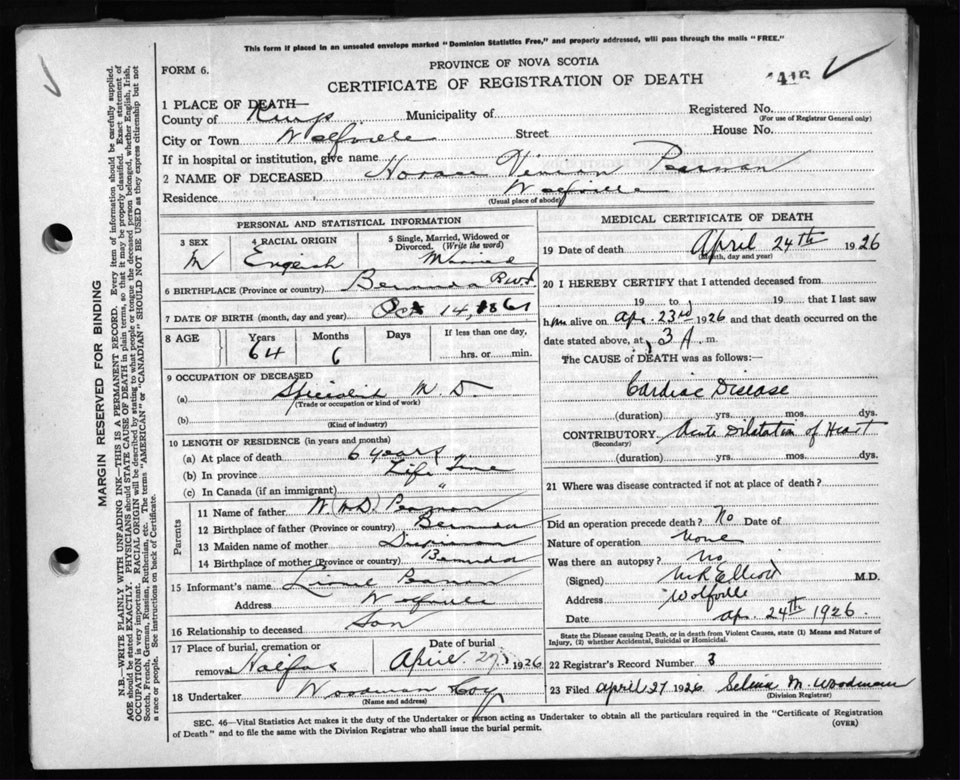 This form if placed in an unsealed envelope marked "Dominion Statistics Free," and properly addressed, will pass through the mails "FREE."
PROVINCE OF NOVA SCOTIA
FORM 6.
CERTIFICATE OF REGISTRATION OF DEATH
1416
1 PLACE OF DEATH—
County of Kings Municipality of Registered No.
(For use of Registrar General only)
City or Town Wolfville Street House No.
If in hospital or institution, give name
2 NAME OF DECEASED Horace Vivian Pearman
Residence Wolfville
(Usual place of abode)
PERSONAL AND STATISTICAL INFORMATION
3 SEX 4 RACIAL ORIGIN 5 Single, Married, Widowed or Divorced. (Write the word)
M English Married
6 BIRTHPLACE (Province or country) Bermuda B.W.I.
7 DATE OF BIRTH (month, day and year) Oct 14, 1861
8 AGE Years Months Days If less than one day,
64 6 hrs. or min.
9 OCCUPATION OF DECEASED
(a) Specialist M. D.
(Trade or occupation or kind of work)
(b)
(Kind of industry)
10 LENGTH OF RESIDENCE (in years and months)
(a) At place of death 6 years
(b) In province Life Time
(c) In Canada (if an immigrant) "
Parents
11 Name of father Pearman
12 Birthplace of father (Province or country) Bermuda
13 Maiden name of mother
14 Birthplace of mother (Province or country) Bermuda
15 Informant's name Lionel
Address Wolfville
16 Relationship to deceased Son
17 Place of burial, cremation or removal Halifax
Date of burial April 27 1926
18 Undertaker Woodman Coy
(Name and address)
MEDICAL CERTIFICATE OF DEATH
19 Date of death April 24th 1926
(Month, day and year)
20 I HEREBY CERTIFY that I attended deceased from
19 to 19 that I last saw
him alive on Apr. 23rd 1926 and that death occurred on
date stated above, at 3 A. m.
The CAUSE of DEATH was as follows:
Cardiac Disease
(duration) yrs. mos. dys.
CONTRIBUTORY Acute Dilatation of Heart
(Secondary)
(duration) yrs. mos. dys.
21 Where was disease contracted if not at place of death?
Did an operation precede death? No Date of
Nature of operation None
Was there an autopsy? No
(Signed) Elliott M.D.
Address Wolfville
Date Apr. 24th 1926.
State the Disease causing Death, or in death from Violent Causes, state (1) Means and Nature of
Injury, (2) whether Accidental, Suicidal or Homicidal.
22 Registrar's Record Number 3
23 Filed April 27 1926 Selina M. Woodman
(Division Registrar)
SEC. 46—Vital Statistics Act makes it the duty of the Undertaker or person acting as Undertaker to obtain all the particulars required in the "Certificate of Registration
of Death" and to file the same with the Division Registrar who shall issue the burial permit.
(OVER)
MARGIN RESERVED FOR BINDING
N.B.—WRITE PLAINLY WITH UNFADING INK—THIS IS A PERMANENT RECORD. Every item of information should be carefully supplied.
AGE should be stated EXACTLY. PHYSICIANS should STATE CAUSE OF DEATH in plain terms, so that it may be properly classified. Exact statement of
OCCUPATION is very important. RACIAL ORIGIN will be described by stating to what people or tongue the deceased person belonged, whether English, Irish,
Scotch, French, German, Russian, Ruthenian, etc. The terms "AMERICAN" or "CANADIAN" SHOULD NOT BE USED as they express citizenship but not
a race or people. See instructions on back of Certificate.